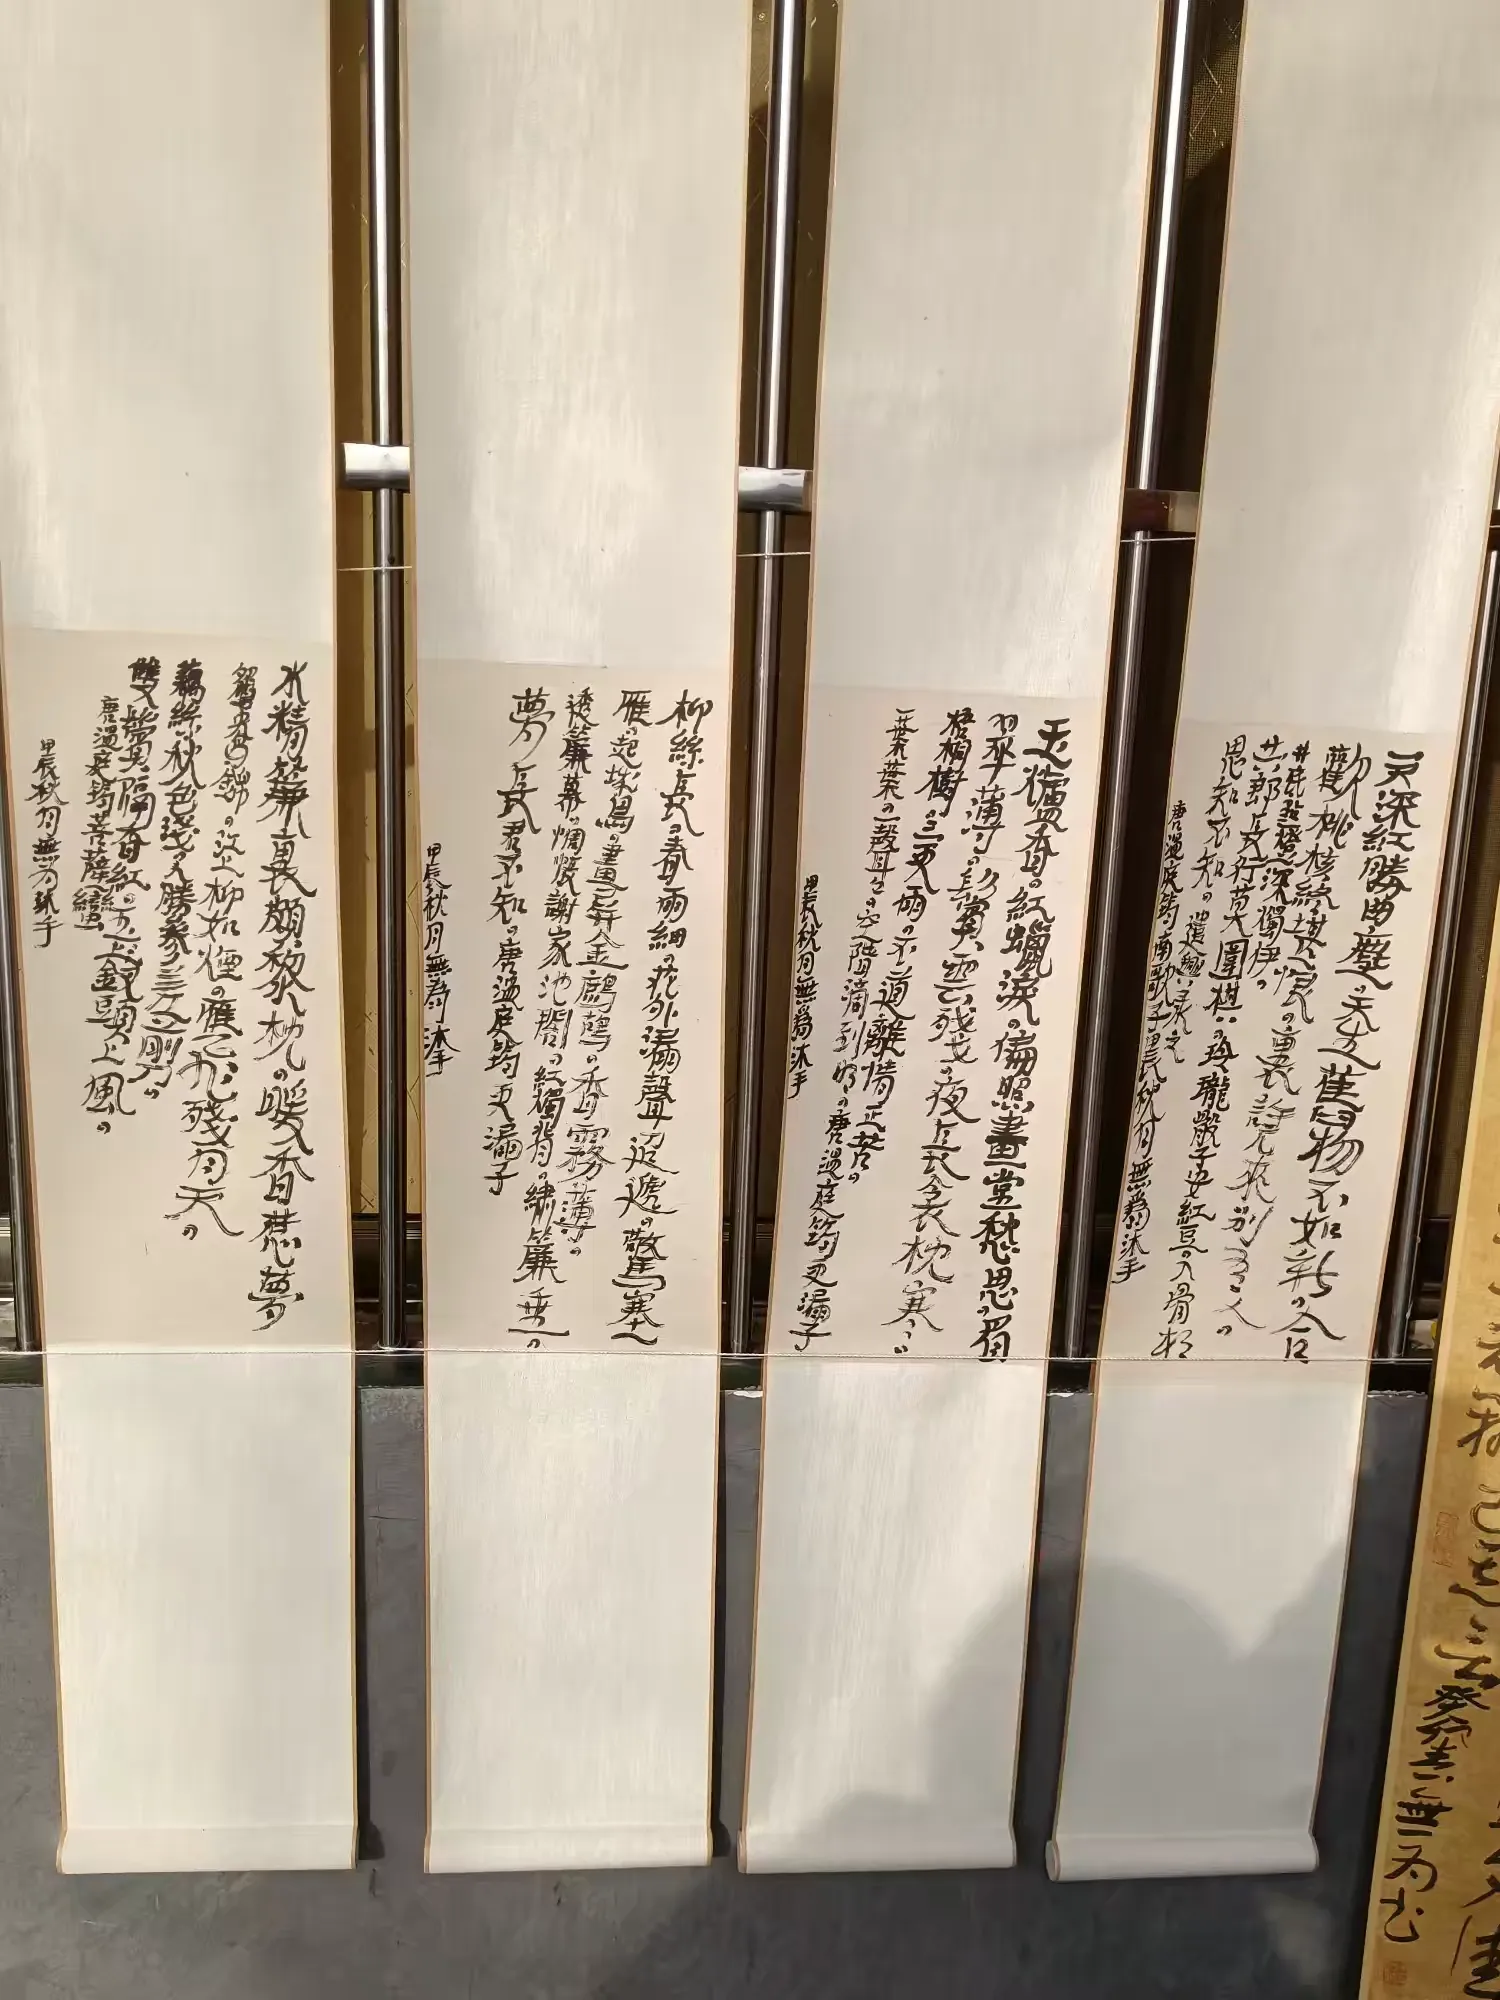 一尺深紅勝曲塵天生舊物不如新合
歡桃核終堪恨裏許元來別有人
井底點燈深燭伊
共郎長行莫圍棋玲瓏骰子安紅豆入骨相
思知不知遣興錄之
唐溫庭筠南歌子甲辰秋月無為沐手
玉爐香紅蠟淚偏照畫堂秋思眉
翠薄鬢雲殘夜長衾枕寒
梧桐樹三更雨不道離情正苦
一葉葉一聲聲空階滴到明唐溫庭筠更漏子
甲辰秋月無為沐手
柳絲長春雨細花外漏聲迢遞驚塞
雁起城烏畫屏金鷓鴣香霧薄
透簾幕惆悵謝家池閣紅燭背繡簾垂
夢長君不知唐溫庭筠更漏子
甲辰秋月無為沐手
水精簾裏頗黎枕暖香惹夢
鴛鴦錦江上柳如煙雁飛殘月天
藕絲秋色淺人勝參差剪
雙鬢隔香紅玉釵頭上風
唐溫庭筠菩薩蠻
甲辰秋月無為沐手
癸卯春無為書